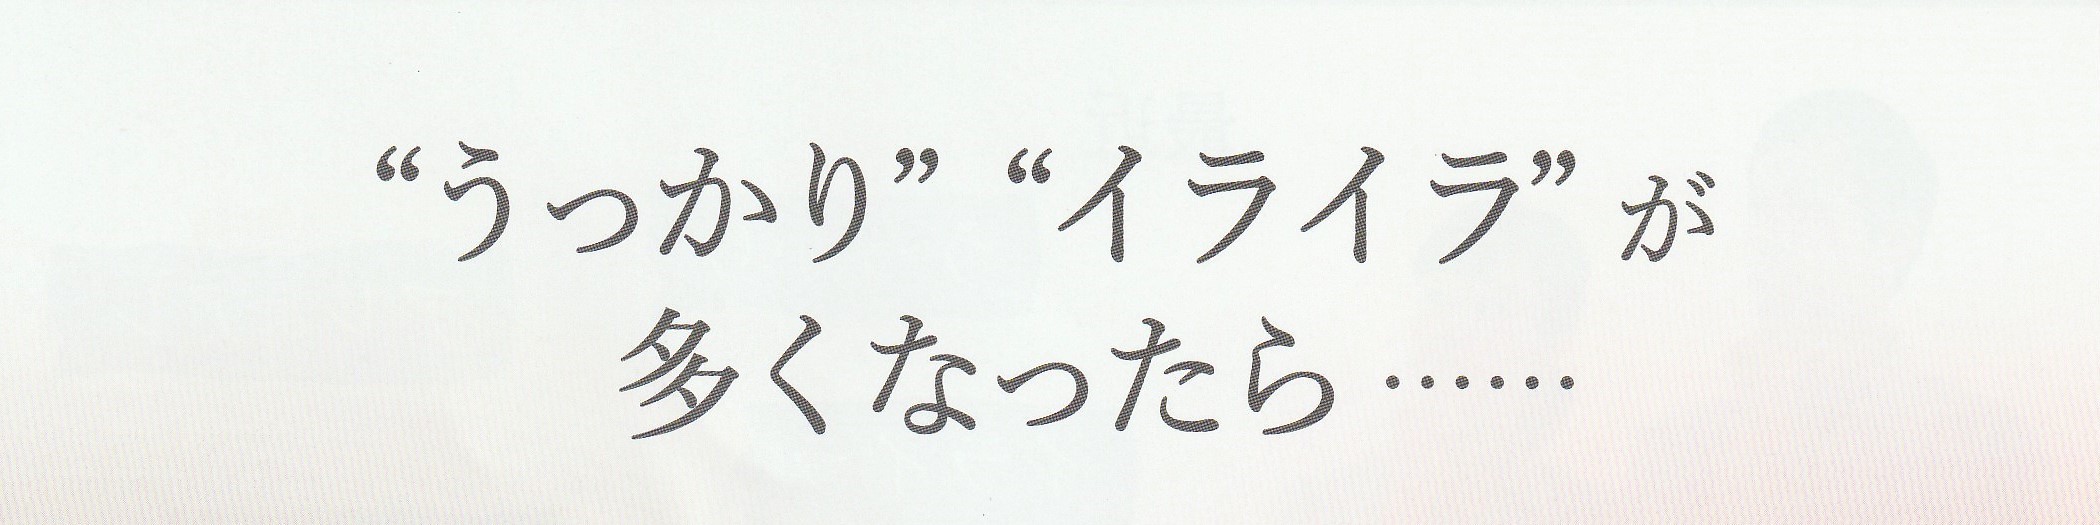 “うっかり” “イライラ”が
多くなったら……